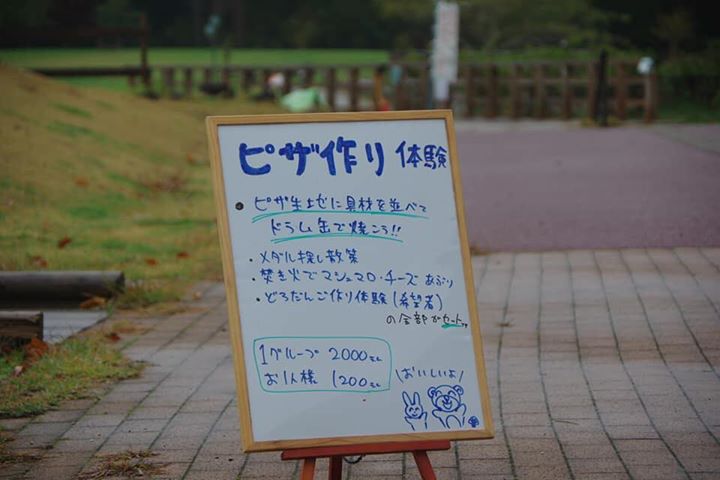 ピザ作り 体験
・ピザ生地に具材を並べて
ドラム缶で焼こう!!
・メダル探し散策
・焚き火でマシュマロ・チーズ あぶり
・どろだんご作り体験(希望者)
の全部がセット
1グループ 2000円
お1人様 1200円
\おいしいよ/